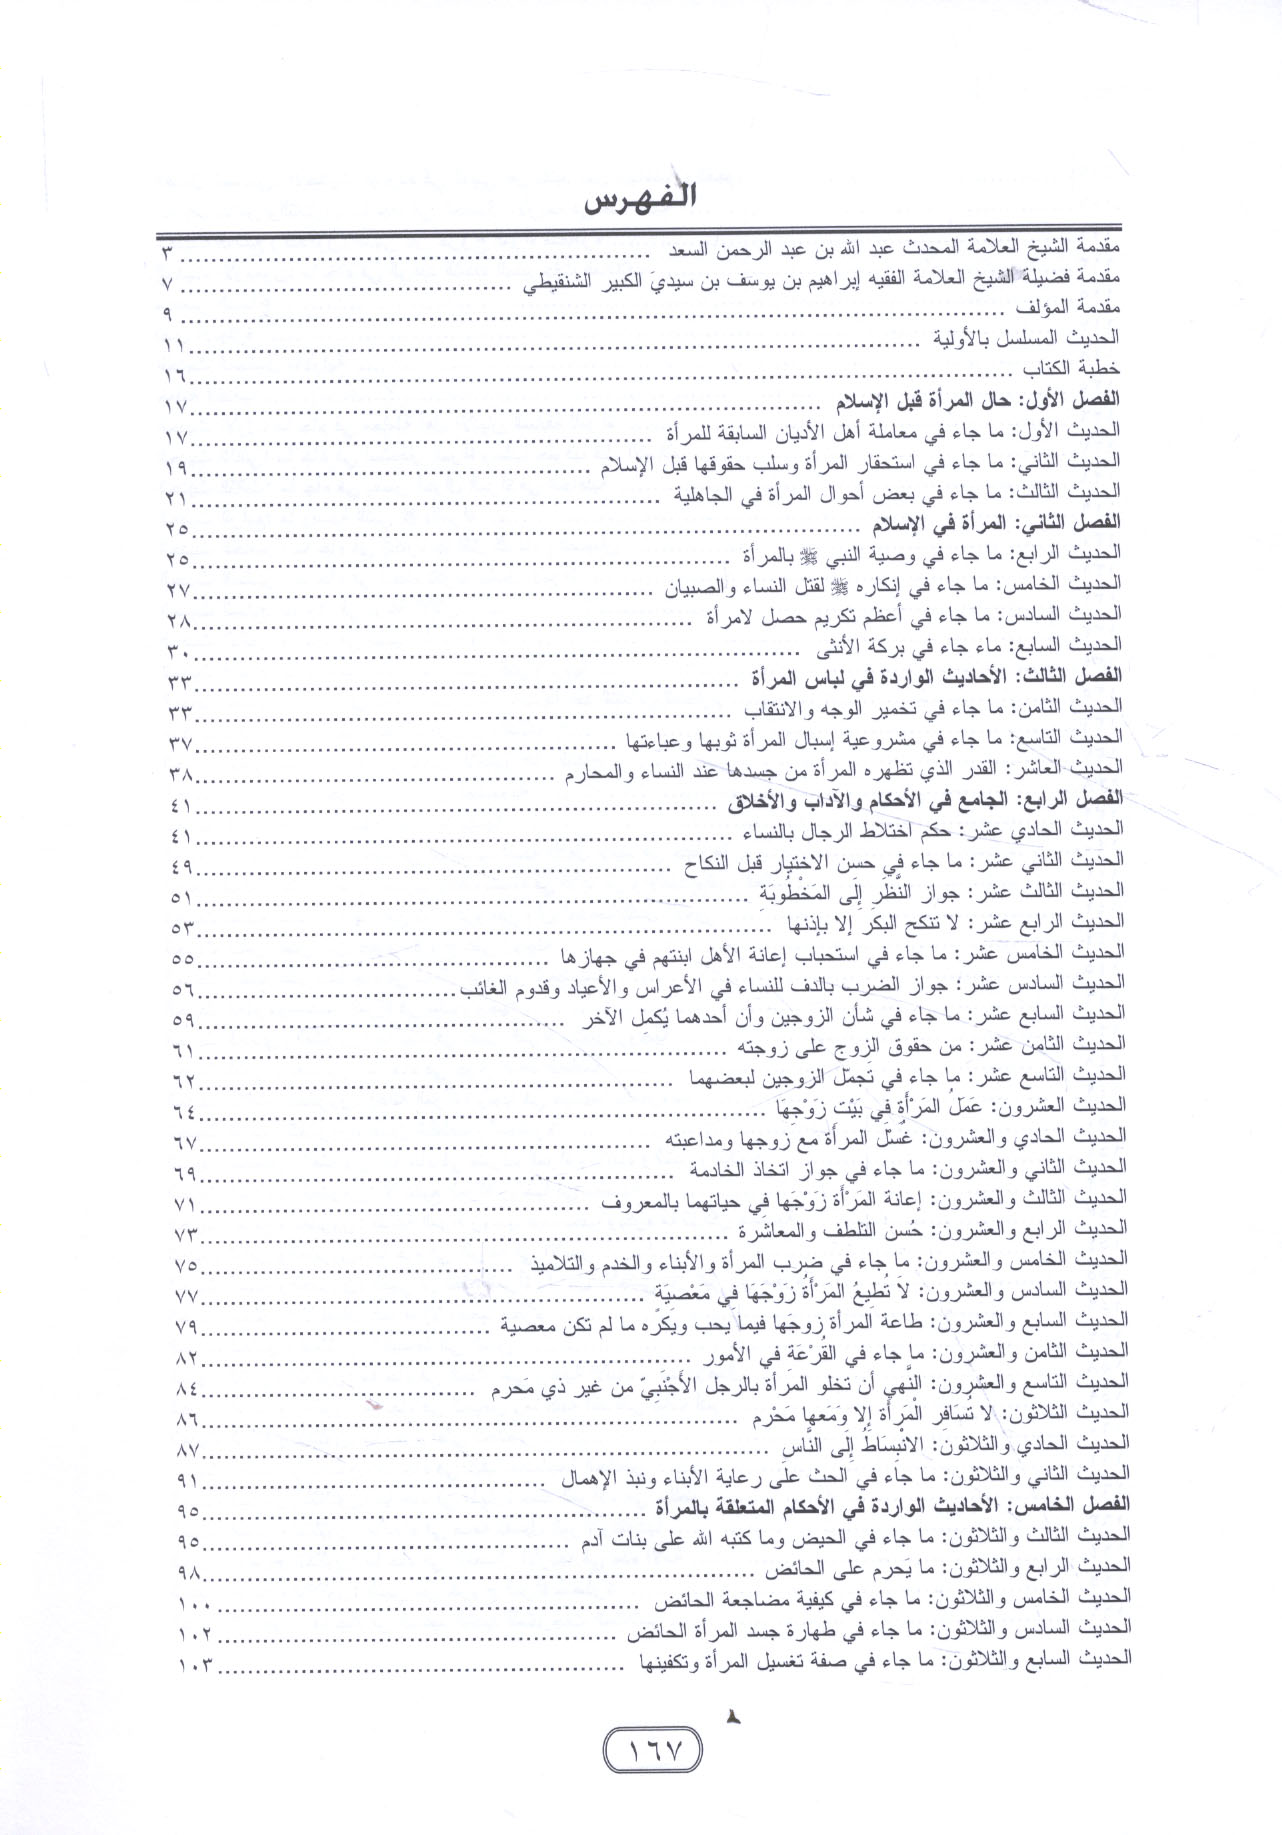 الفهرس
مقدمة الشيخ العلامة المحدث عبد الله بن عبد الرحمن السعد ................ ٣
مقدمة فضيلة الشيخ العلامة الفقيه إبراهيم بن يوسف بن سيديَ الكبير الشنقيطي ................ ٧
مقدمة المؤلف ................ ٩
الحديث المسلسل بالأولية ................ ١١
خطبة الكتاب ................ ١٦
الفصل الأول: حال المرأة قبل الإسلام ................ ١٧
الحديث الأول: ما جاء في معاملة أهل الأديان السابقة للمرأة ................ ١٧
الحديث الثاني: ما جاء في استحقار المرأة وسلب حقوقها قبل الإسلام ................ ١٩
الحديث الثالث: ما جاء في بعض أحوال المرأة في الجاهلية ................ ٢١
الفصل الثاني: المرأة في الإسلام ................ ٢٥
الحديث الرابع: ما جاء في وصية النبي ﷺ بالمرأة ................ ٢٥
الحديث الخامس: ما جاء في إنكاره ﷺ لقتل النساء والصبيان ................ ٢٧
الحديث السادس: ما جاء في أعظم تكريم حصل لامرأة ................ ٢٨
الحديث السابع: ماء جاء في بركة الأنثى ................ ٣٠
الفصل الثالث: الأحاديث الواردة في لباس المرأة ................ ٣٣
الحديث الثامن: ما جاء في تخمير الوجه والانتقاب ................ ٣٣
الحديث التاسع: ما جاء في مشروعية إسبال المرأة ثوبها وعباءتها ................ ٣٧
الحديث العاشر: القدر الذي تظهره المرأة من جسدها عند النساء والمحارم ................ ٣٨
الفصل الرابع: الجامع في الأحكام والآداب والأخلاق ................ ٤١
الحديث الحادي عشر: حكم اختلاط الرجال بالنساء ................ ٤١
الحديث الثاني عشر: ما جاء في حسن الاختيار قبل النكاح ................ ٤٩
الحديث الثالث عشر: جواز النَّظَرِ إِلَى المَخْطُوبَةِ ................ ٥١
الحديث الرابع عشر: لا تنكح البكر إلا بإذنها ................ ٥٣
الحديث الخامس عشر: ما جاء في استحباب إعانة الأهل ابنتهم في جهازها ................ ٥٥
الحديث السادس عشر: جواز الضرب بالدف للنساء في الأعراس والأعياد وقدوم الغائب ................ ٥٦
الحديث السابع عشر: ما جاء في شأن الزوجين وأن أحدهما يُكمِل الآخر ................ ٥٩
الحديث الثامن عشر: من حقوق الزوج على زوجته ................ ٦١
الحديث التاسع عشر: ما جاء في تَجمّل الزوجين لبعضهما ................ ٦٢
الحديث العشرون: عَمَلُ المَرْأَةِ فِي بَيْت زَوْجِهَا ................ ٦٤
الحديث الحادي والعشرون: غُسْلُ المرأة مع زوجها ومداعبته ................ ٦٧
الحديث الثاني والعشرون: ما جاء في جواز اتخاذ الخادمة ................ ٦٩
الحديث الثالث والعشرون: إعانة المَرْأَة زَوْجَها فِي حياتهما بالمعروف ................ ٧١
الحديث الرابع والعشرون: حُسن التلطف والمعاشرة ................ ٧٣
الحديث الخامس والعشرون: ما جاء في ضرب المرأة والأبناء والخدم والتلاميذ ................ ٧٥
الحديث السادس والعشرون: لَا تُطِيعُ المَرْأَةُ زَوْجَهَا فِي مَعْصِيَة ................ ٧٧
الحديث السابع والعشرون: طاعة المرأة زوجَها فيما يحب ويكره ما لم تكن معصية ................ ٧٩
الحديث الثامن والعشرون: ما جاء في القُرْعَة في الأمور ................ ٨٢
الحديث التاسع والعشرون: النَّهي أن تخلو المَرأة بالرجل الأَجْنَبِيّ من غير ذي مَحرم ................ ٨٤
الحديث الثلاثون: لا تُسَافِرِ الْمَرأة إلا وَمَعها مَحْرم ................ ٨٦
الحديث الحادي والثلاثون: الانْبِسَاطُ إِلَى النَّاسِ ................ ٨٧
الحديث الثاني والثلاثون: ما جاء في الحث على رعاية الأبناء ونبذ الإهمال ................ ٩١
الفصل الخامس: الأحاديث الواردة في الأحكام المتعلقة بالمرأة ................ ٩٥
الحديث الثالث والثلاثون: ما جاء في الحيض وما كتبه الله على بنات آدم ................ ٩٥
الحديث الرابع والثلاثون: ما يَحرم على الحائض ................ ٩٨
الحديث الخامس والثلاثون: ما جاء في كيفية مضاجعة الحائض ................ ١٠٠
الحديث السادس والثلاثون: ما جاء في طهارة جسد المرأة الحائض ................ ١٠٢
الحديث السابع والثلاثون: ما جاء في صفة تغسيل المرأة وتكفينها ................ ١٠٣
١٦٧